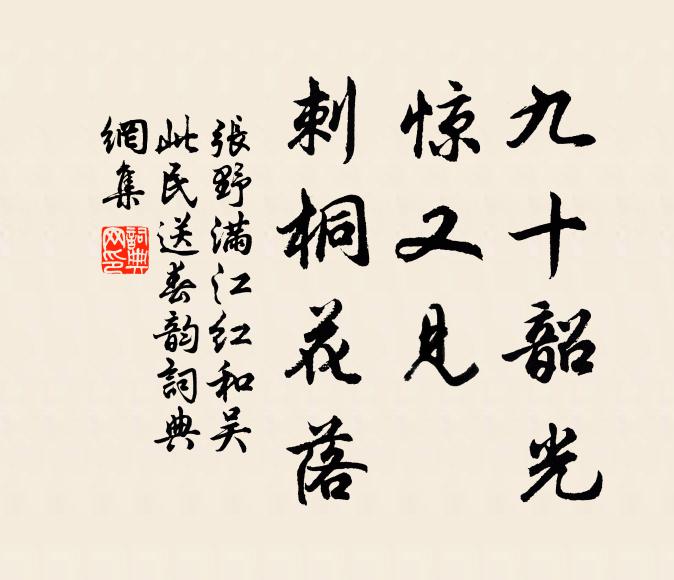 九十韶光
惊又见
刺桐花落
張野满江红和吴
此民送春韵詞典
網集
詞典
网印